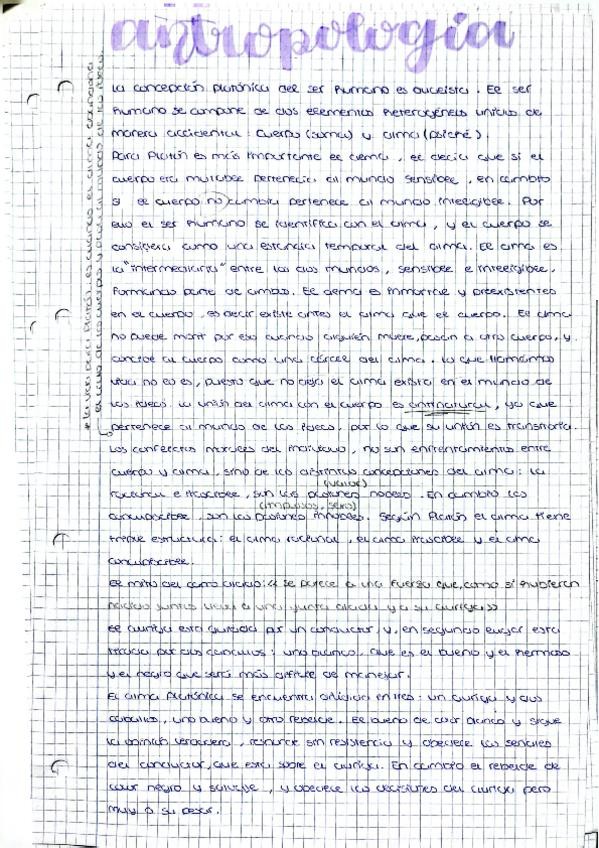 antropología
la concepción platónica del ser humano es dualista. El ser
humano se compone de dos elementos heterogéneos unidos de
manera accidental: cuerpo (soma) y alma (psiché).
Para Platón es más importante el alma, él decía que si el
cuerpo era mutable pertenecía al mundo sensible, en cambio
si el cuerpo no cambia pertenece al mundo inteligible. Por
eso el ser humano se identifica con el alma, y el cuerpo se
considera como una estancia temporal del alma. El alma es
la "intermediaria" entre los dos mundos, sensible e inteligible,
formando parte de ambos. El alma es inmortal y preexistentes
en el cuerpo, es decir existe antes el alma que el cuerpo. El alma
no puede morir por eso cuando alguien muere, pasan a otro cuerpo, y
concibe al cuerpo como una cárcel del alma. Lo que llamamos
vida no lo es, puesto que no deja el alma exista en el mundo de
las Ideas. La unión del alma con el cuerpo es antinatural, ya que
pertenece al mundo de las Ideas, por lo que su unión es transitoria.
Los conflictos morales del individuo, no son enfrentamientos entre
cuerpo y alma, sino de las distintas concepciones del alma: la
(valor)
racional e irascible, son las pasiones nobles. En cambio las
(impulsos, sexo)
concupiscible, son las pasiones innobles. Según Platón el alma tiene
triple estructura: el alma racional, el alma irascible y el alma
concupiscible.
El mito del carro alado: « se parece a una fuerza que, como si hubieran
nacido juntos lleva a una yunta alada y a su auriga »
El auriga está guiada por un conductor, y, en segundo lugar está
tirada por dos caballos: uno blanco, que es el bueno y el hermoso
y el negro que será más difícil de manejar.
El alma platónica se encuentra dividida en tres: un auriga y dos
caballos, uno bueno y otro rebelde. El bueno de color blanco y sigue
la opinión verdadera, sin resistencia y obedece las señales
del conductor, que está sobre el auriga. En cambio el rebelde de
color negro y salvaje, y obedece las decisiones del auriga pero
muy a su pesar.
* la vida para Platón, es cuando el alma